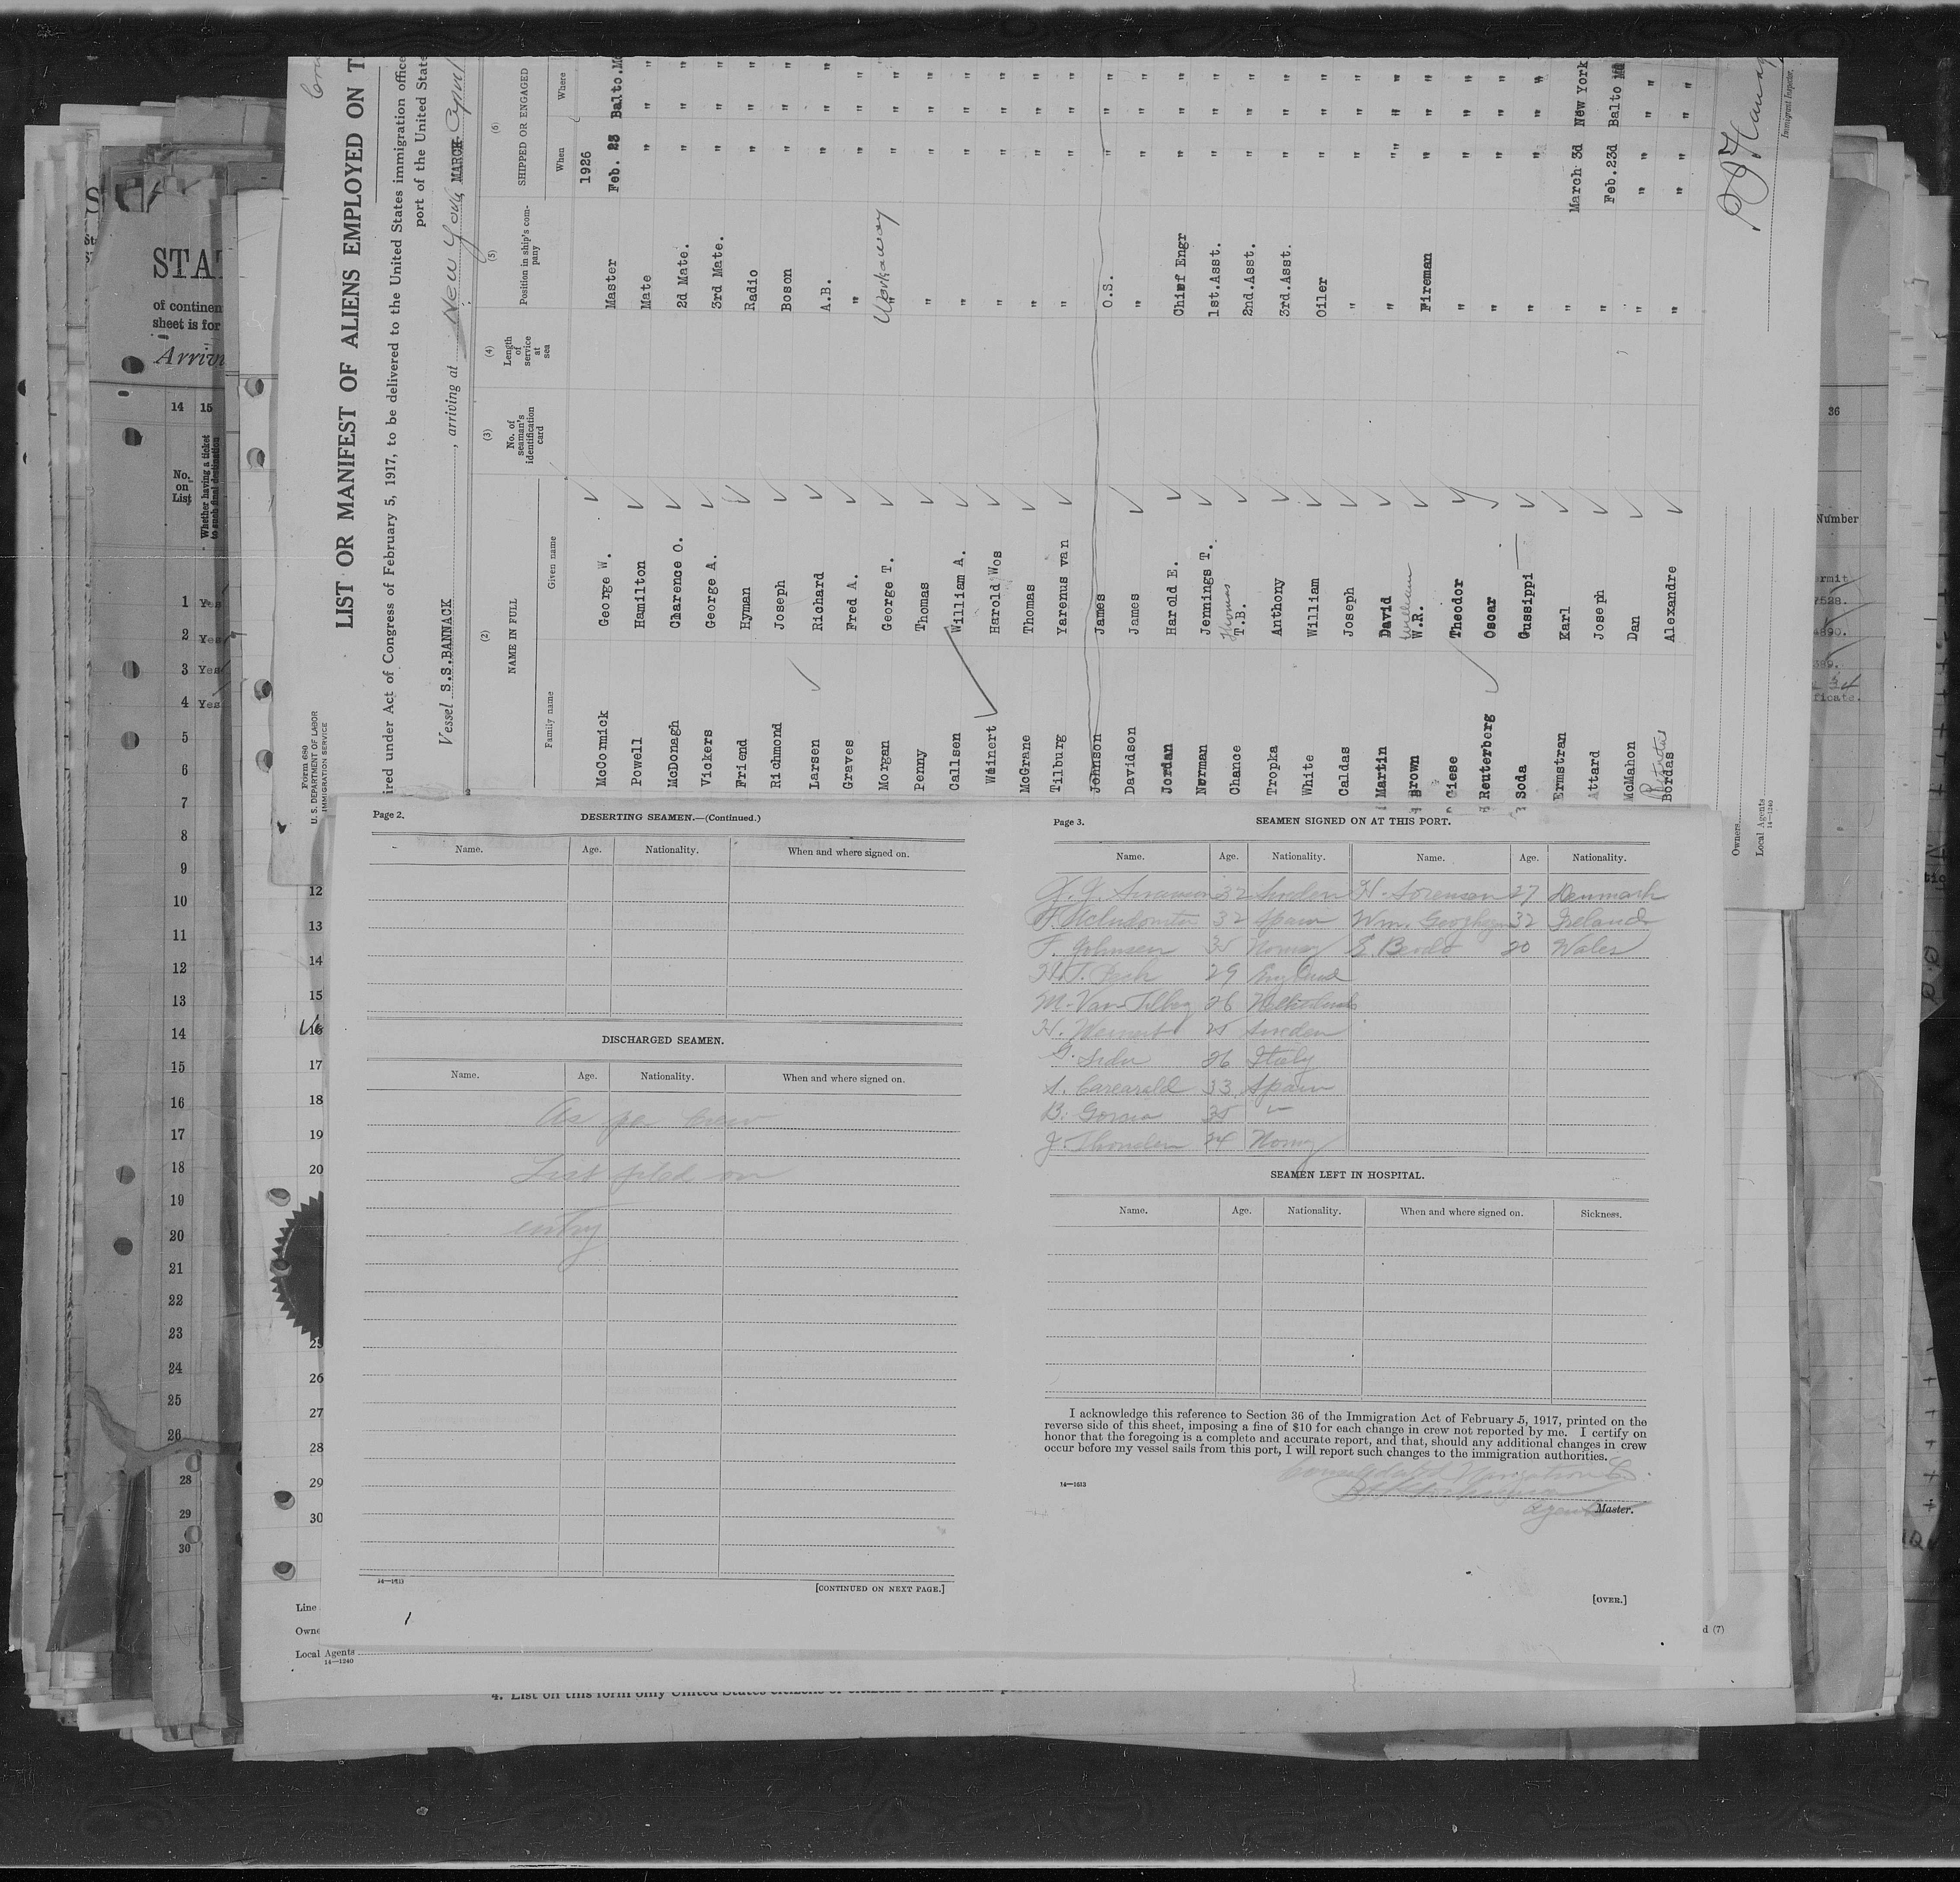 LIST OR MANIFEST OF ALIENS EMPLOYED ON T
ired under Act of Congress of February 5, 1917, to be delivered to the United States immigration office
port of the United State
Vessel S.S.BANNACK, arriving at New York, MARCH April
Form 680
U. S. DEPARTMENT OF LABOR
IMMIGRATION SERVICE
(2) (3) (4) (5) (6)
NAME IN FULL
Family name Given name
No. of seaman's identification card
Length of service at sea
Position in ship's company
SHIPPED OR ENGAGED
When Where
1926
McCormick George W. Master Feb. 23 Balto.M
Powell Hamilton Mate " " "
McDonagh Charence O. 2d Mate. " " "
Vickers George A. 3rd Mate. " " "
Friend Hyman Radio " " "
Richmond Joseph Boson " " "
Larsen Richard A.B. " " "
Graves Fred A. " " " "
Morgan George T. " Workaway " " "
Penny Thomas " " " "
Callsen William A. " " " "
Weinert Harold Wos " " " "
McGrane Thomas " " " "
Tilburg Yarenus van " " " "
Johnson James O.S. " " "
Davidson James " " " "
Jordan Harold E. Chief Engr " " "
Norman Jennings T. 1st.Asst. " " "
Chance Thomas T.B. 2nd.Asst. " " "
Tropka Anthony 3rd.Asst. " " "
White William Oiler " " "
Caldas Joseph " " " "
Martin David " " " "
Brown William W.R. Fireman " " "
Giese Theodor " " " "
Reuterberg Oscar " " " "
Soda Gussippi " " " "
Ermstran Karl " March 3d New York
Attard Joseph " Feb.23d Balto Md
McMahon Dan " " " "
Bordas Alexandre " " " "
Immigrant Inspector.
Owners
Local Agents
14—1240
STA
of continen
sheet is for
Arriv
14 15
No. on List
Whether having a ticket to such final destination
1 Yes
2 Yes
3 Yes
4 Yes
5
6
7
8
9
10
11
12
13
14
15
16
17
18
19
20
21
22
23
24
25
26
28
29
30
12
13
14
15
16
17
18
19
20
25
26
27
28
29
30
36
Number
ermit
7528.
ficate.
Page 2.
DESERTING SEAMEN.—(Continued.)
Name. Age. Nationality. When and where signed on.
DISCHARGED SEAMEN.
Name. Age. Nationality. When and where signed on.
As per crew
List filed on
entry
14—1613
[CONTINUED ON NEXT PAGE.]
Page 3.
SEAMEN SIGNED ON AT THIS PORT.
Name. Age. Nationality. Name. Age. Nationality.
32 Sweden H. Sorenson 27 Denmark
32 Spain Wm. Geoghegan 32 Ireland
F. Johnsen 35 Norway E. 20 Wales
29 England
M. Van Tilbog 26 Netherlands
H. Weinert 25 Sweden
G. 26 Italy
S. 33 Spain
B. 35 "
J. 24 Norway
SEAMEN LEFT IN HOSPITAL.
Name. Age. Nationality. When and where signed on. Sickness.
I acknowledge this reference to Section 36 of the Immigration Act of February 5, 1917, printed on the
reverse side of this sheet, imposing a fine of $10 for each change in crew not reported by me. I certify on
honor that the foregoing is a complete and accurate report, and that, should any additional changes in crew
occur before my vessel sails from this port, I will report such changes to the immigration authorities.
Navigation Co.
Agents Master.
14—1613
[OVER.]
Line
Owne
Local Agents
14—1240
d (7)
4. List on this form only United States citizens